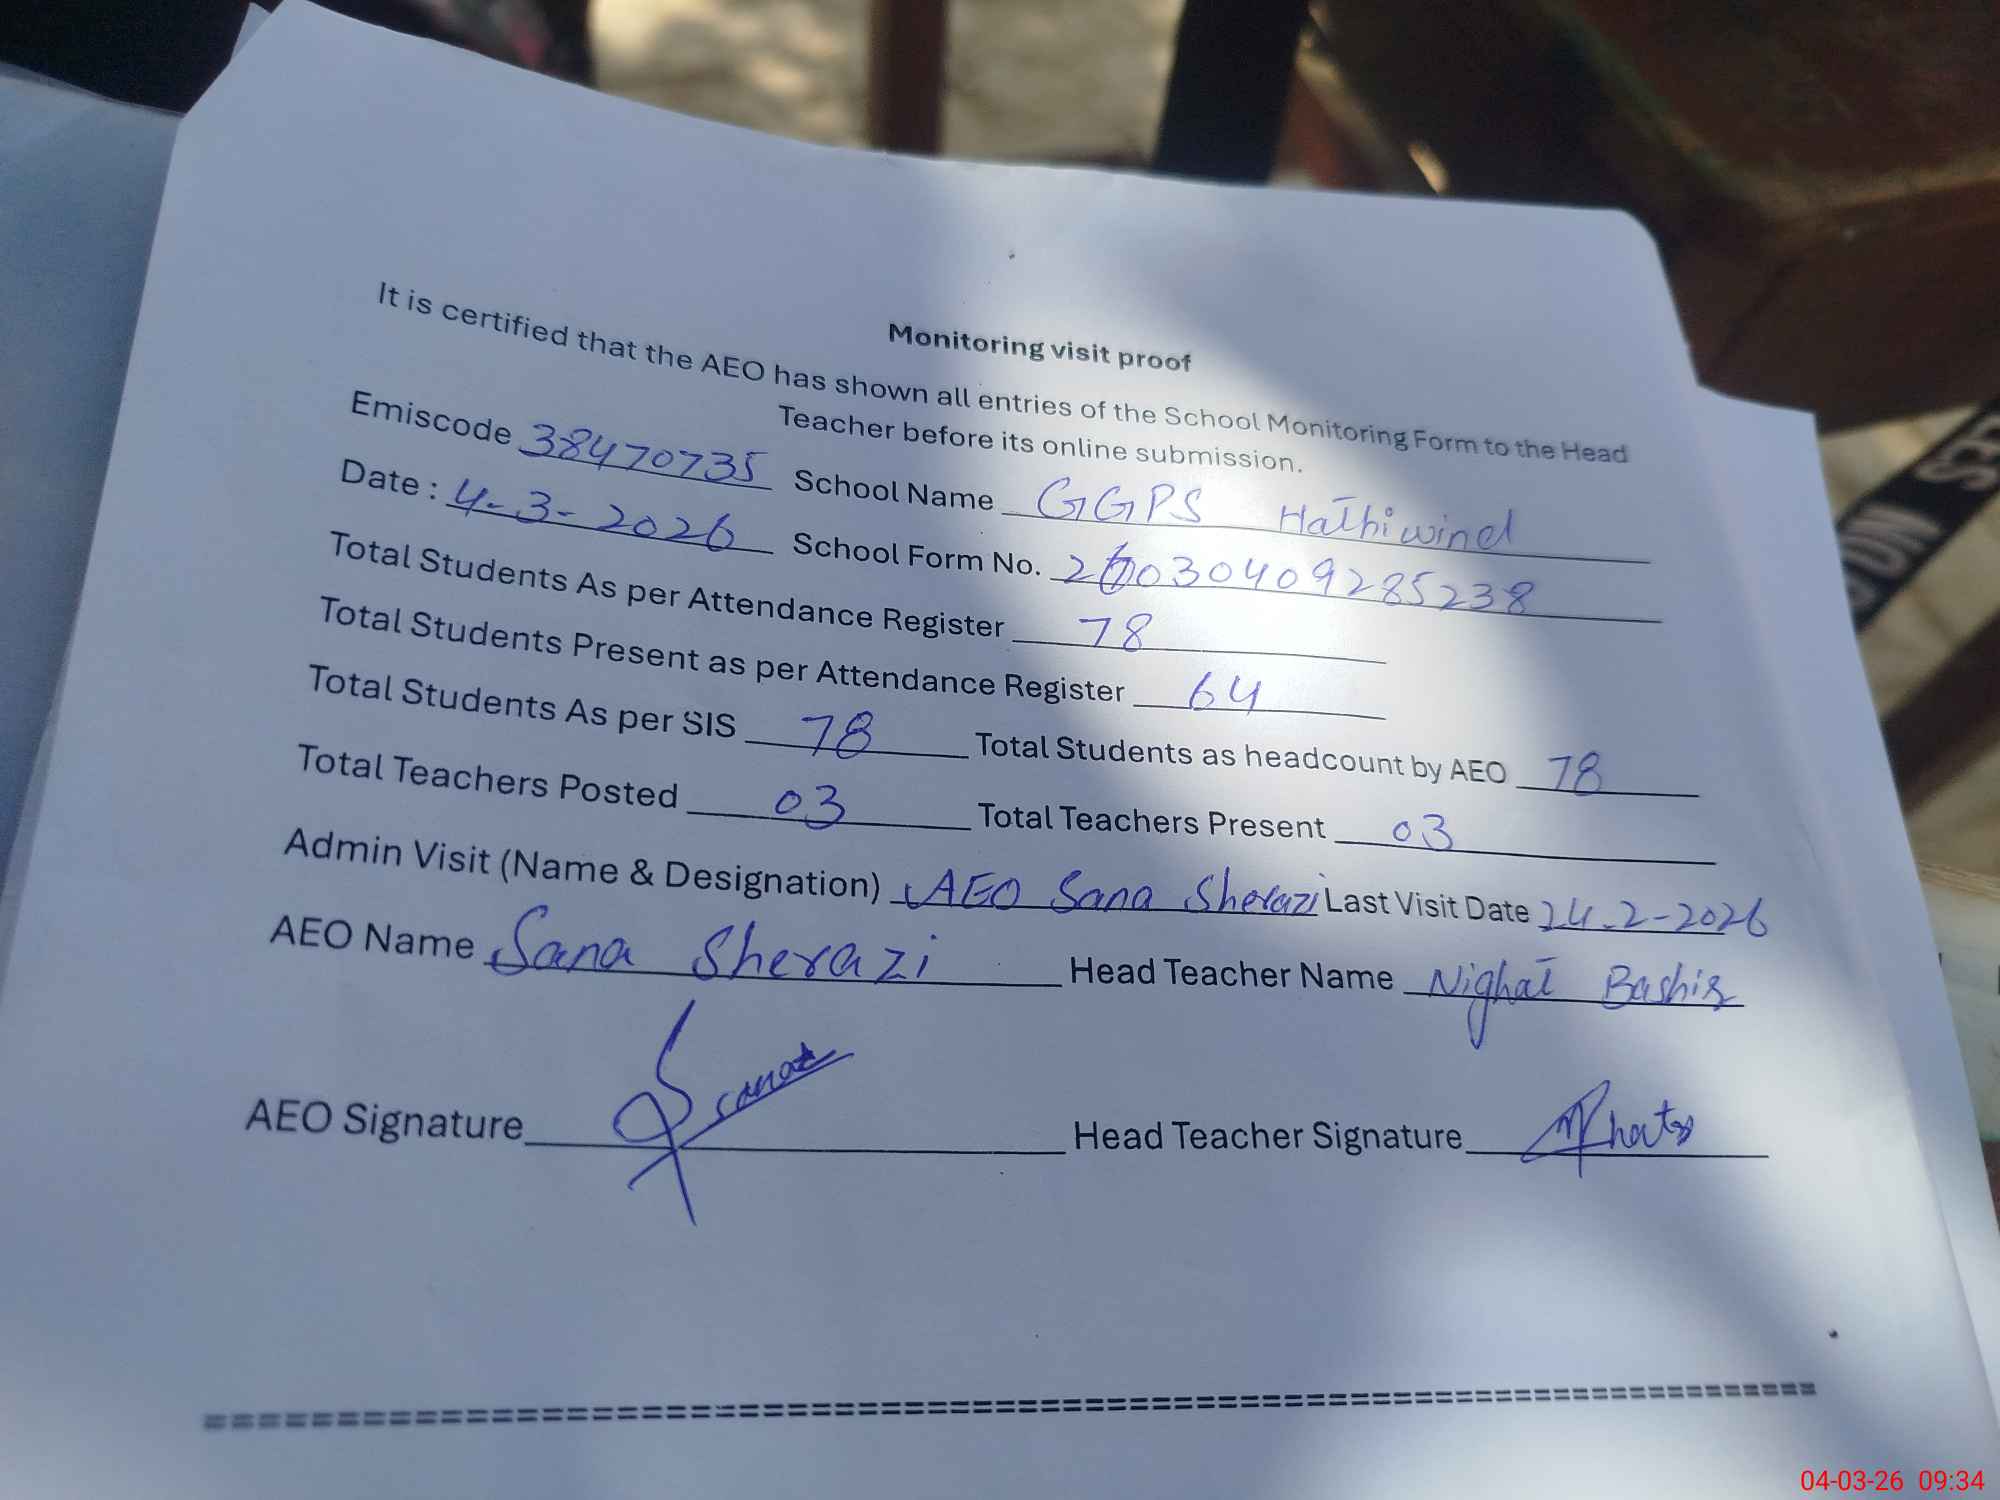 Monitoring visit proof
It is certified that the AEO has shown all entries of the School Monitoring Form to the Head
Teacher before its online submission.
Emiscode 38470735 School Name GGPS Hathiwind
Date : 4-3-2026 School Form No. 26030409285238
Total Students As per Attendance Register 78
Total Students Present as per Attendance Register 64
Total Students As per SIS 78 Total Students as headcount by AEO 78
Total Teachers Posted 03 Total Teachers Present 03
Admin Visit (Name & Designation) AEO Sana Sherazi Last Visit Date 24-2-2026
AEO Name Sana Sherazi Head Teacher Name Nighat Bashir
AEO Signature Head Teacher Signature
04-03-26 09:34